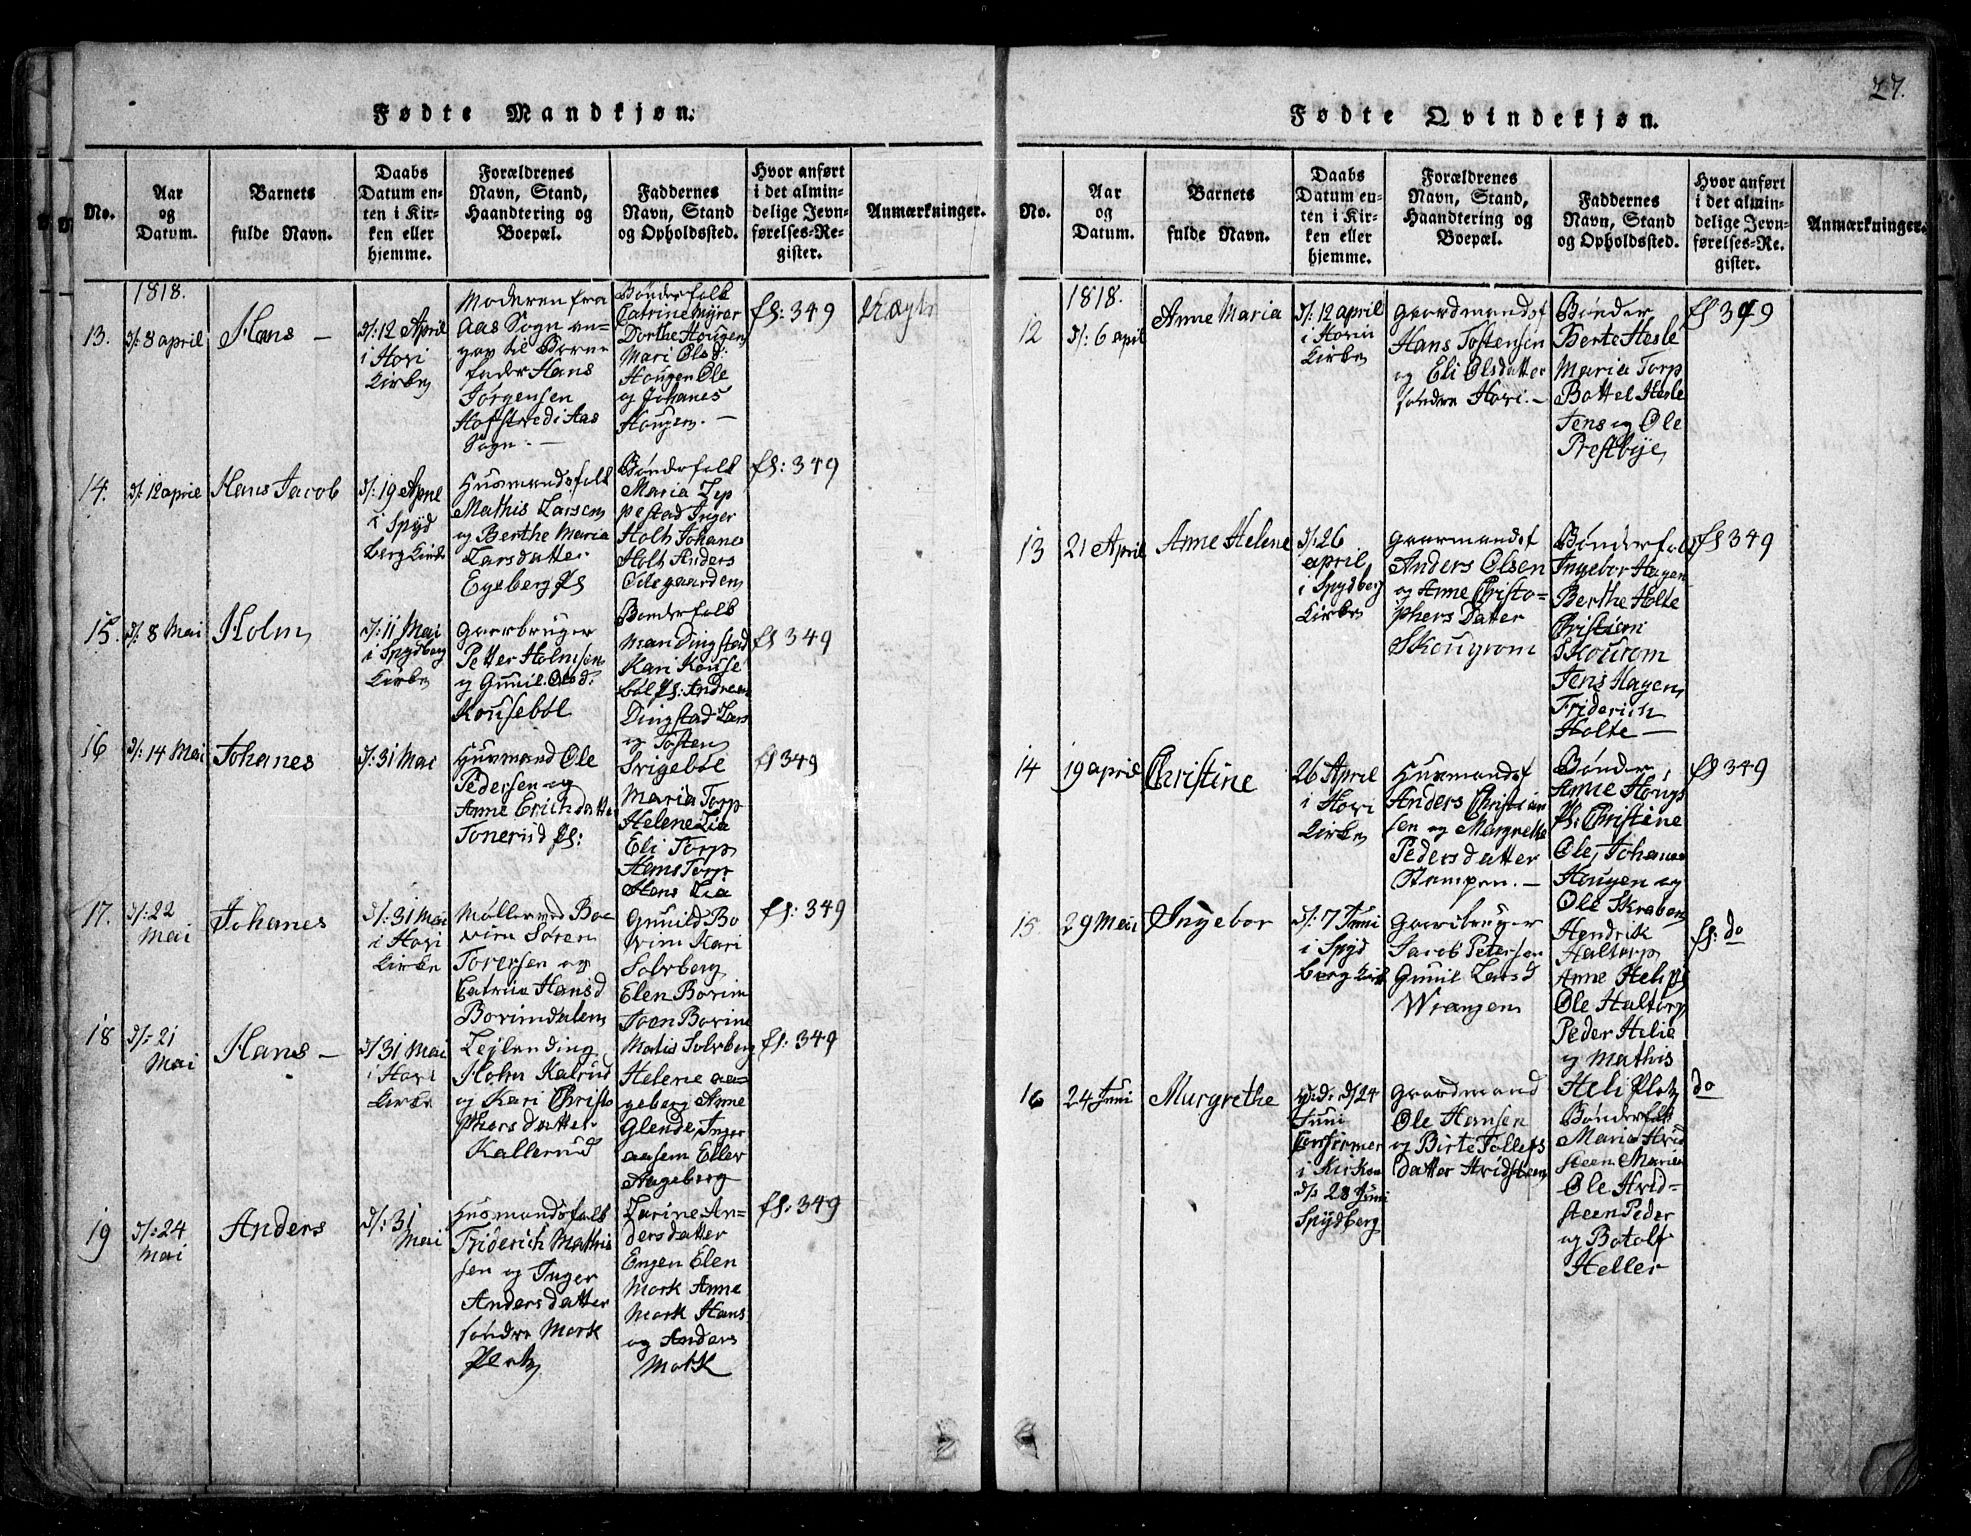 27.
Fødte Mandkjøn.
No.
Aar
og
Datum.
Barnets
fulde Navn.
Daabs
Datum en-
ten i Kir-
ken eller
hjemme.
Forældrenes
Navn, Stand,
Haandtering og
Boepæl.
Faddernes
Navn, Stand
og Opholdssted.
Hvor anført
i det almin-
delige Jevn-
førelses-Re-
gister.
Anmærkninger.
1818.
13.
d/: 8 april
Hans —
d/: 12 April
i Hovi
Kirke
Moderen fra
Aas Sogn an-
gav til Barne
fader Hans
Jörgensen
Hofstved i Aas
Sogn. —
Bönderfolk
Catrine Myrer
Dorthe Hougen
Mari Olsd:
Hougen Ole
og Johanes
Hougen. —
fl: 349
14.
d/: 12 april
Hans Jacob
d/: 19 Aprl
i Spyd
berg Kirke
Husmandsfolk
Mathis Larsen
og Berthe Maria
Larsdatter
Egeberg Pl
Bönderfolk
Maria Lep
pestad Inger
Holt Johane
Holt Anders
Odegaarden
fl: 349
15.
d/: 8 Mai
Holm
d/: 11 Mai
i Spydberg
Kirke
Gaarbruger
Petter Holmsen
og Gunil Olsd:
Kouseböl
Bonderfolk
Mari Dingstad
Kari Kouse
böl fl: Andreas
Dingstad Lars
og Tosten
Svigeböl
fl: 349
16
d/: 14 Mai
Johanes
d/: 31 Mai
Husmand Ole
Pedersen og
Anne Erichdatter
Tonerud fl:
Maria Torp
Helene Lia
Eli Torp
Hans Torp
Hans Lia
fl 349
17.
d/: 22
Mai
Johanes
d/: 31 Mai
i Hovi
Kirke
Møller ved Bo
vim Sören
Torersen og
Catrin Hansd
Bovimdalen
Gunild Bo
vim Kari
Solvberg
Elen Bovim
Joen Bovim
Matis Solvberg
fl: 349
18
d/: 21
Mai
Hans —
d/ 31 Mai
i Hovi
Kirke
Lejlending
Holm Kalrud
og Kari Christo
phersdatter
Kallerud
Helene aa-
geberg Anne
Glende, Inger
aasem Eller
Aageberg
fl: 349
19
d/: 24
Mai
Anders
d/: 31
Mai
Husmandsfolk
Friderich Mathis
sen og Inger
Andersdatter
söndre Mork
Platz
Karine An-
dersdatter
Engen Elen
Mork Anne
Mork Hans
og Anders
Mork
fl: 349
Fødte Qvindekjøn.
No.
Aar
og
Datum.
Barnets
fulde Navn.
Daabs
Datum en-
ten i Kir-
ken eller
hjemme.
Forældrenes
Navn, Stand,
Haandtering og
Boepæl.
Faddernes
Navn, Stand
og Opholdssted.
Hvor anført
i det almin-
delige Jevn-
førelses-Re-
gister.
Anmærkninger.
1818.
12
d/: 6 april
Anne Maria
d/: 12 april
i Hovin
Kirke
Gaardmandsf
Hans Tostensen
og Eli Olsdatter
söndre Hovi. —
Bönder
Berte Hesle
Maria Torp
Bottel Hesle
Jens og Ole
Prestbye
fl 349
13
21 April
Anne Helene
d/: 26
april
i Spydberg
Kirke
Gaarmandsf
Anders Olsen
og Anne Christo-
phers Datter
Skougrom
Bönderfolk
Ingebor Hagen
Berthe Holte
Christien
Skourom
Jens Hagen
Friderich
Holte —
fl 349
14
19 april
Christine
26 April
i Hovi
Kirke
Husmandsf
Anders Christian
sen og Margrethe
Pedersdatter
Stampen. —
Bönder
Anne Hougs
Pl: Christine
Ole, Johanes
Hougen og
Ole Skraben
fl 349
15
29 Mai
Ingebor
d/: 7 Juni
i Spyd
berg Kirk
Gaarbruger
Jacob Petersen
Gunil Larsd
Wrangen
Hendrik
Haltorp
Anne Helip
Ole Haltorp
Peder Helie
og Mathis
Heli Platz
fl: do
16
24 Juni
Murgrethe
H: d: d/24
Juni
Confirmer
i Kirken
d/: 28 Juni
Spydberg
Gaardmand
Ole Hansen
og Birte Tollefs
datter Hvidsteen
Bönderfolk
Maria Hvid
steen Marie
Ole Hvid-
steen Peder
og Botolf
Heller
do